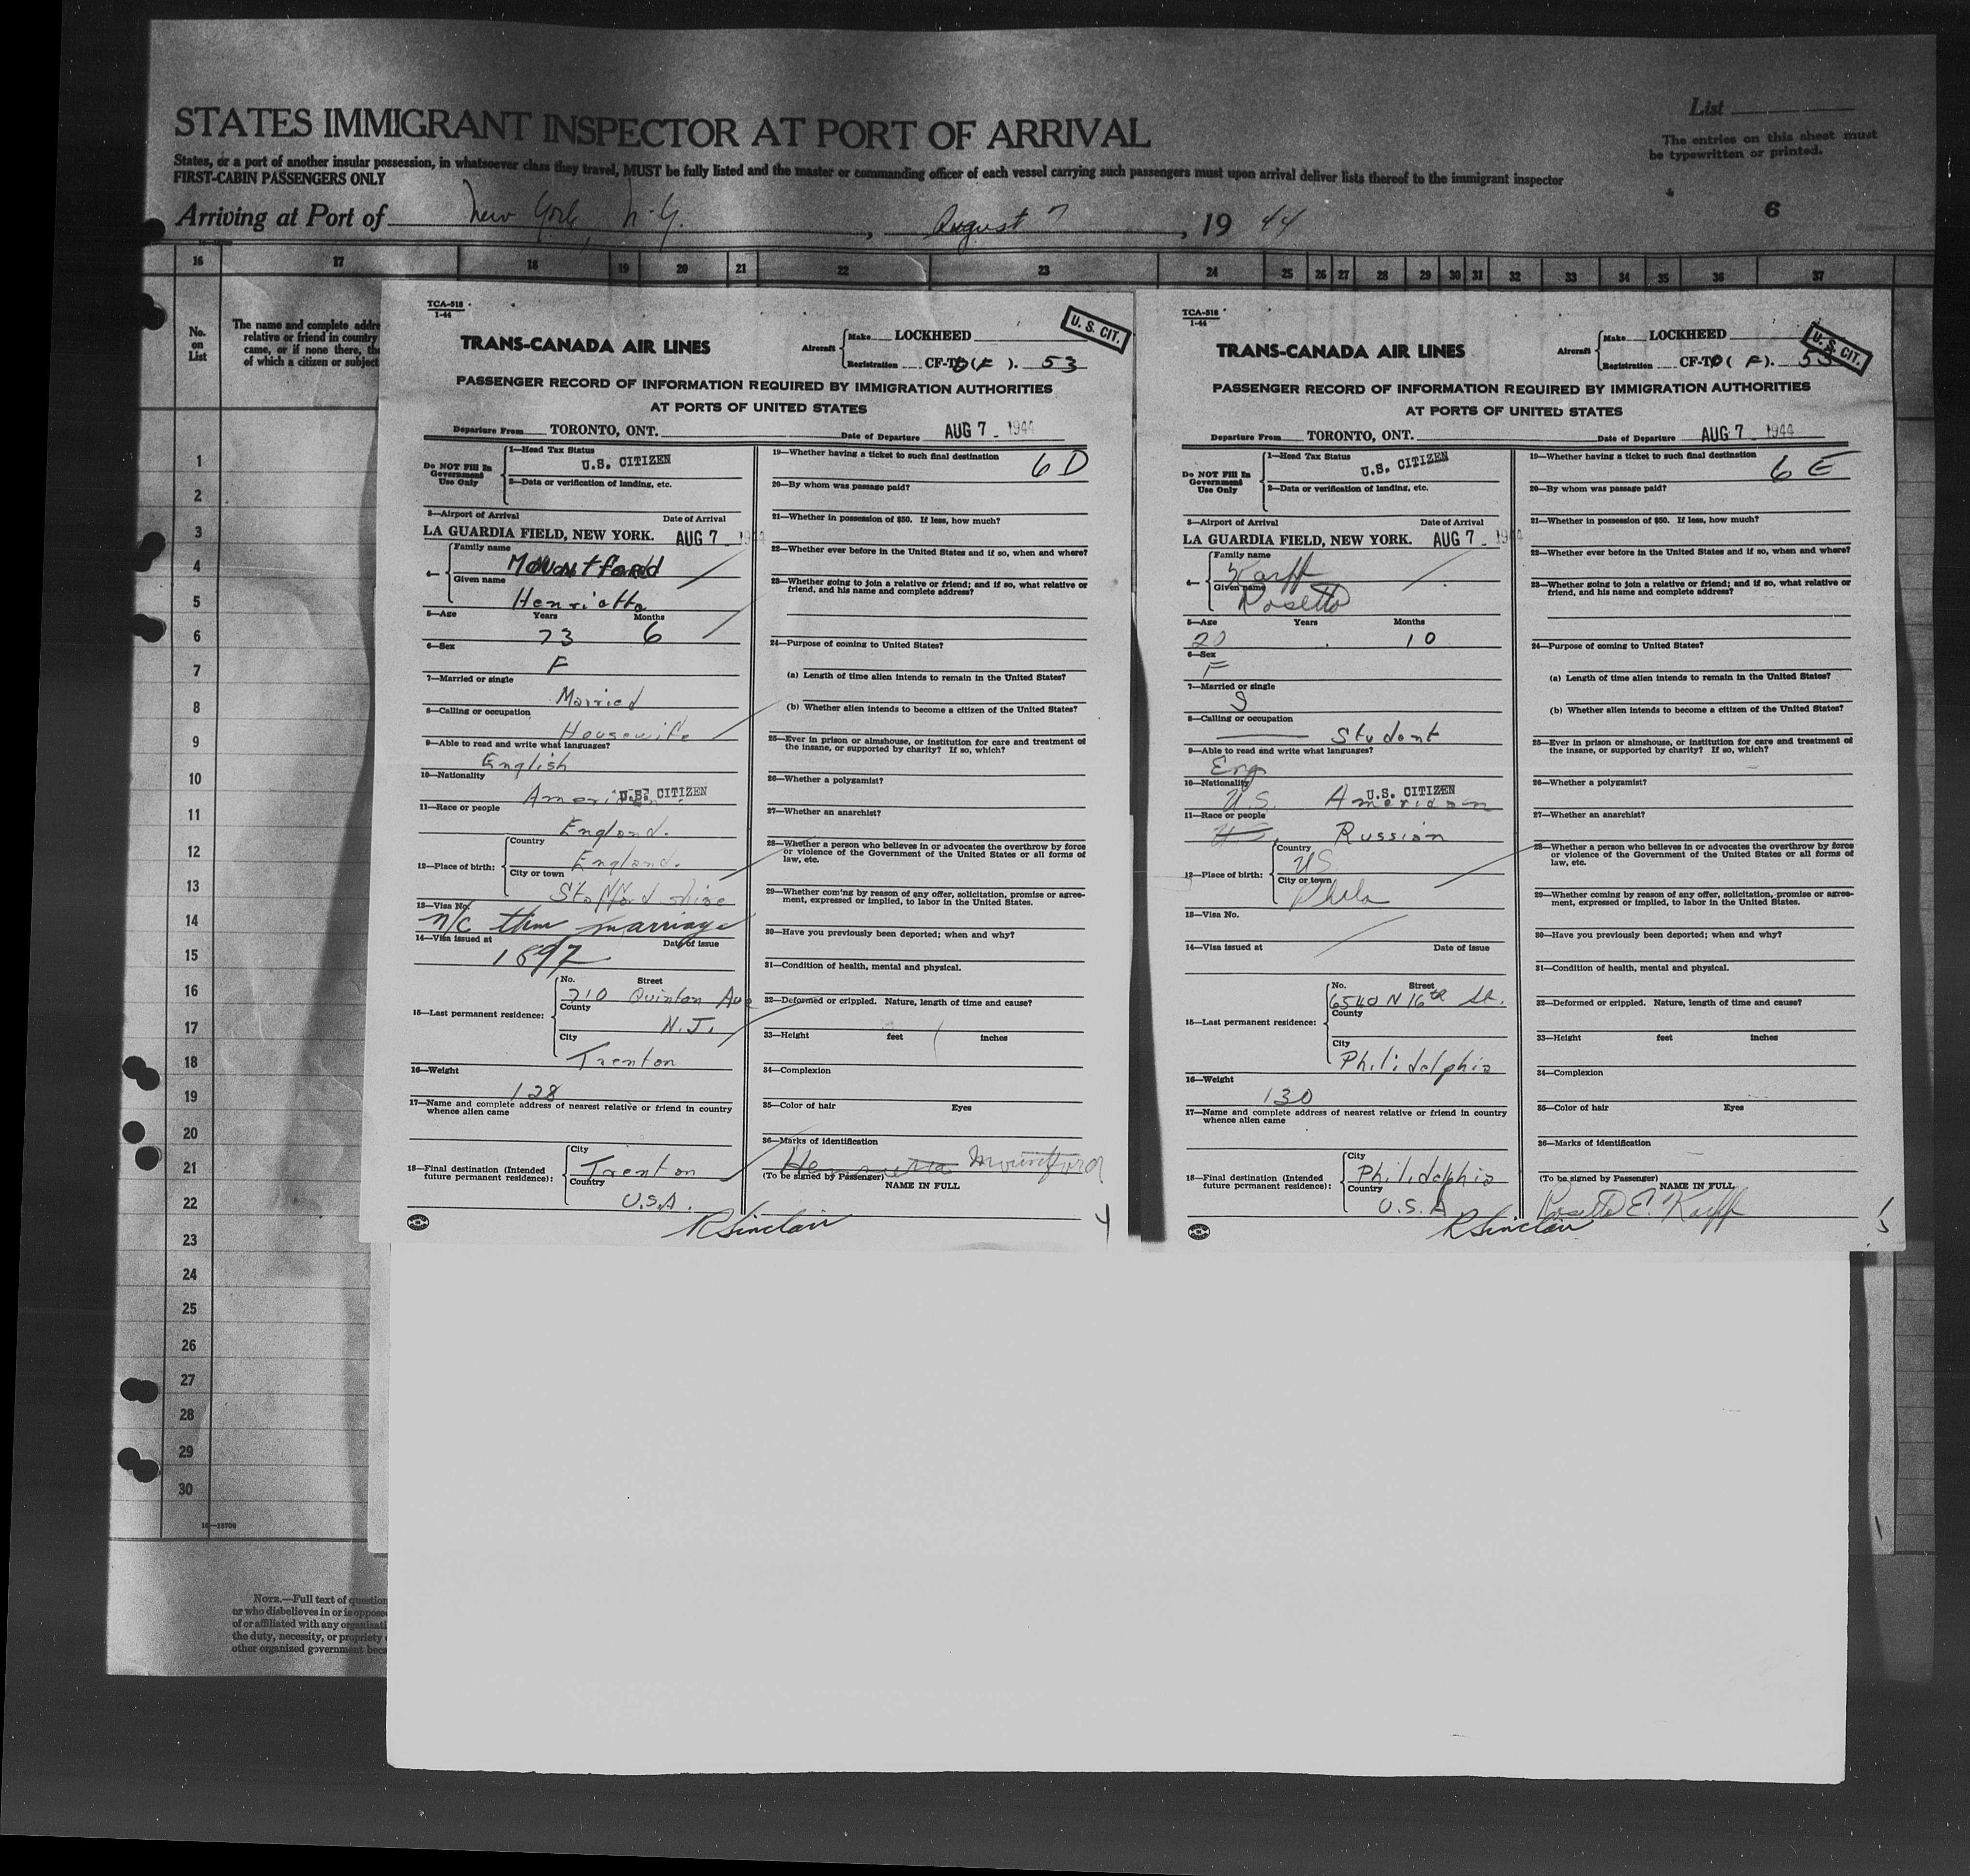 STATES IMMIGRANT INSPECTOR AT PORT OF ARRIVAL
List
The entries on this sheet must
be typewritten or printed.
States, or a port of another insular possession, in whatsoever class they travel, MUST be fully listed and the master or commanding officer of each vessel carrying such passengers must upon arrival deliver lists thereof to the immigrant inspector
FIRST-CABIN PASSENGERS ONLY
6
Arriving at Port of New York, N.Y. , August 7 , 19 44
16 17 18 19 20 21 22 23 24 25 26 27 28 29 30 31 32 33 34 35 36 37
No.
on
List
The name and complete addre
relative or friend in country
came, or if none there, the
of which a citizen or subject
1
2
3
4
5
6
7
8
9
10
11
12
13
14
15
16
17
18
19
20
21
22
23
24
25
26
27
28
29
30
16—18709
NOTE.—Full text of question
or who disbelieves in or is oppose
of or affiliated with any organizati
the duty, necessity, or propriety
other organized government beca
TCA-518
1-44
U. S. CIT.
TRANS-CANADA AIR LINES
Aircraft
Make LOCKHEED
Registration CF-T (F). 53
PASSENGER RECORD OF INFORMATION REQUIRED BY IMMIGRATION AUTHORITIES
AT PORTS OF UNITED STATES
Departure From TORONTO, ONT. Date of Departure AUG 7 - 1944
Do NOT Fill In
Government
Use Only
1—Head Tax Status
U.S. CITIZEN
2—Data or verification of landing, etc.
3—Airport of Arrival Date of Arrival
LA GUARDIA FIELD, NEW YORK. AUG 7 - 1944
4—
Family name
Mountford
Given name
Henrietta
5—Age Years Months
73 6
6—Sex
F
7—Married or single
Married
8—Calling or occupation
Housewife
9—Able to read and write what languages?
English
10—Nationality
American U.S. CITIZEN
11—Race or people
England.
12—Place of birth:
Country
England.
City or town
Staffordshire
13—Visa No.
n/c thru marriage
14—Visa issued at Date of issue
1897
15—Last permanent residence:
No. Street
710 Quinton Ave
County
N.J.
City
Trenton
16—Weight
128
17—Name and complete address of nearest relative or friend in country
whence alien came
18—Final destination (Intended
future permanent residence):
City
Trenton
Country
U.S.A.
R Sinclair
19—Whether having a ticket to such final destination
6 D
20—By whom was passage paid?
21—Whether in possession of $50. If less, how much?
22—Whether ever before in the United States and if so, when and where?
23—Whether going to join a relative or friend; and if so, what relative or
friend, and his name and complete address?
24—Purpose of coming to United States?
(a) Length of time alien intends to remain in the United States?
(b) Whether alien intends to become a citizen of the United States?
25—Ever in prison or almshouse, or institution for care and treatment of
the insane, or supported by charity? If so, which?
26—Whether a polygamist?
27—Whether an anarchist?
28—Whether a person who believes in or advocates the overthrow by force
or violence of the Government of the United States or all forms of
law, etc.
29—Whether coming by reason of any offer, solicitation, promise or agree-
ment, expressed or implied, to labor in the United States.
30—Have you previously been deported; when and why?
31—Condition of health, mental and physical.
32—Deformed or crippled. Nature, length of time and cause?
33—Height feet inches
34—Complexion
35—Color of hair Eyes
36—Marks of identification
Henrietta Mountford
(To be signed by Passenger)
NAME IN FULL
4
TCA-518
1-44
U. S. CIT.
TRANS-CANADA AIR LINES
Aircraft
Make LOCKHEED
Registration CF-T (F). 53
PASSENGER RECORD OF INFORMATION REQUIRED BY IMMIGRATION AUTHORITIES
AT PORTS OF UNITED STATES
Departure From TORONTO, ONT. Date of Departure AUG 7 - 1944
Do NOT Fill In
Government
Use Only
1—Head Tax Status
U.S. CITIZEN
2—Data or verification of landing, etc.
3—Airport of Arrival Date of Arrival
LA GUARDIA FIELD, NEW YORK. AUG 7 - 1944
4—
Family name
Karff
Given name
Rosetta
5—Age Years Months
20 10
6—Sex
F
7—Married or single
S
8—Calling or occupation
Student
9—Able to read and write what languages?
Eng
10—Nationality
U.S. American U.S. CITIZEN
11—Race or people
Russian
12—Place of birth:
Country
US
City or town
Phila
13—Visa No.
14—Visa issued at Date of issue
15—Last permanent residence:
No. Street
6540 N 16th St.
County
City
Philidelphia
16—Weight
130
17—Name and complete address of nearest relative or friend in country
whence alien came
18—Final destination (Intended
future permanent residence):
City
Philidelphia
Country
U.S.A
R Sinclair
19—Whether having a ticket to such final destination
6 E
20—By whom was passage paid?
21—Whether in possession of $50. If less, how much?
22—Whether ever before in the United States and if so, when and where?
23—Whether going to join a relative or friend; and if so, what relative or
friend, and his name and complete address?
24—Purpose of coming to United States?
(a) Length of time alien intends to remain in the United States?
(b) Whether alien intends to become a citizen of the United States?
25—Ever in prison or almshouse, or institution for care and treatment of
the insane, or supported by charity? If so, which?
26—Whether a polygamist?
27—Whether an anarchist?
28—Whether a person who believes in or advocates the overthrow by force
or violence of the Government of the United States or all forms of
law, etc.
29—Whether coming by reason of any offer, solicitation, promise or agree-
ment, expressed or implied, to labor in the United States.
30—Have you previously been deported; when and why?
31—Condition of health, mental and physical.
32—Deformed or crippled. Nature, length of time and cause?
33—Height feet inches
34—Complexion
35—Color of hair Eyes
36—Marks of identification
(To be signed by Passenger)
NAME IN FULL
Rosetta E. Karff
5